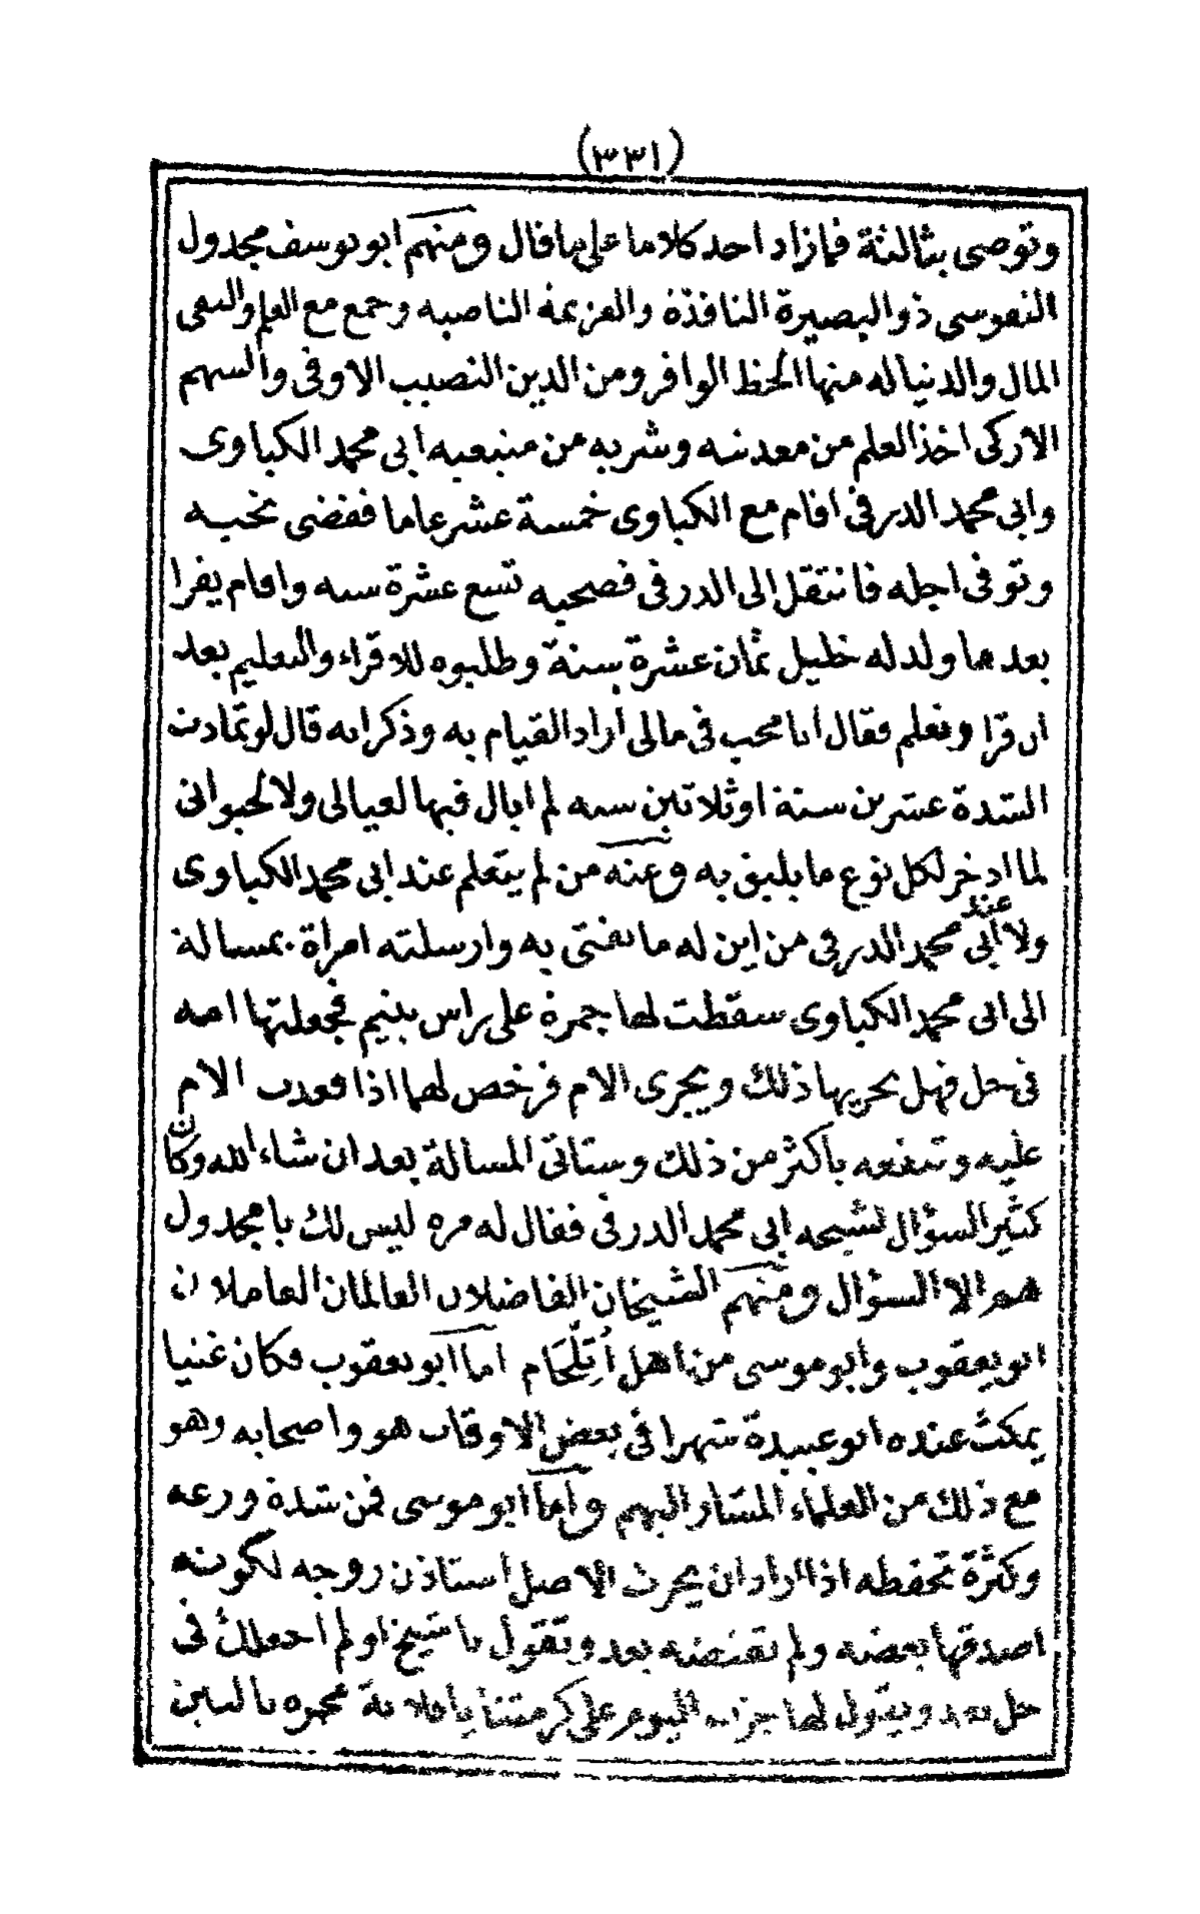 (٣٣١)
وتوصى بثالثة فمازاد احد كلاما على ما قال ومنهم ابو يوسف مجدول
النفوسى ذو البصيرة النافذة والعزيمة الناصبه وجمع مع العلم والتقى
المال والدنيا له منها الحظ الوافر ومن الدين النصيب الاوفى والسهم
الازكى اخذ العلم من معدنه وشربه من منبعيه ابى محمد الكباوى
وابى محمد الدرفى اقام مع الكباوى خمسة عشر عاما فقضى نحبه
وتوفى اجله فانتقل الى الدرفى فصحبه تسع عشرة سنه واقام يقرا
بعد ما ولد له خليل ثمان عشرة سنة وطلبوه للاقراء والتعليم بعد
ان قرا وتعلم فقال انا محب فى مالى اراد القيام به وذكر انه قال لو تمادت
الشدة عشرين سنة او ثلاثين سنه لم ابال فيها لعيالى ولا لحيوانى
لما ادخر لكل نوع ما يليق به وعنه من لم يتعلم عند ابى محمد الكباوى
ولا عند ابى محمد الدرفى من اين له ما يفتى به وارسلته امراة بمسالة
الى ابى محمد الكباوى سقطت لها جمرة على راس يتيم فجعلتها امه
فى حل فهل يجزيها ذلك ويجزى الام فرخص لهما اذا قعدت الام
عليه وتنفعه باكثر من ذلك وستاتى المسالة بعد ان شاء الله وكان
كثير السؤال لشيخه ابى محمد الدرفى فقال له مره ليس لك يا مجدول
هم الا السؤال ومنهم الشيخان الفاضلان العالمان العاملان
ابو يعقوب وابو موسى من اهل اتلحام اما ابو يعقوب فكان غنيا
يمكث عنده ابو عبيدة شهرا فى بعض الاوقات هو واصحابه وهو
مع ذلك من العلماء المشار اليهم واما ابو موسى فمن شدة ورعه
وكثرة تحفظه اذا اراد ان يحرث الاصل استاذن زوجه لكونه
اصدقها بعضه ولم تقبضه بعد وتقول يا شيخ اولم اجعلك فى
حل بعد ويقول لها اليوم على كرمتنا يا فلانة